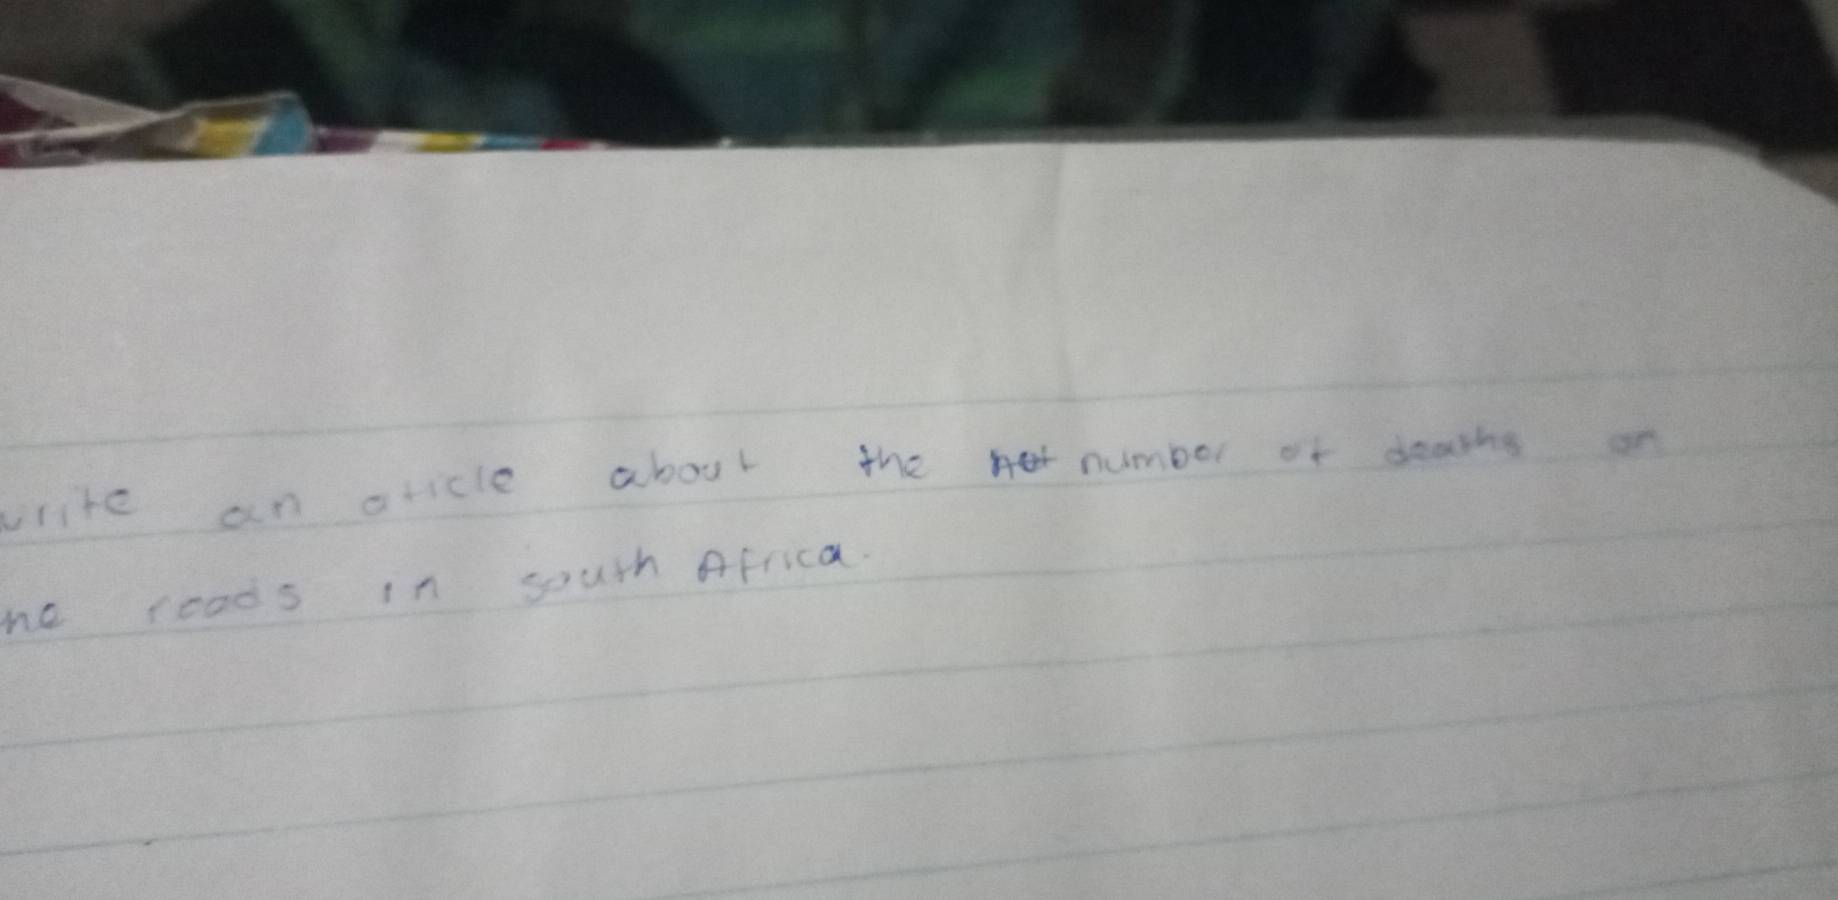 write an aticle about the number of deaths on
he roads in south Africa.